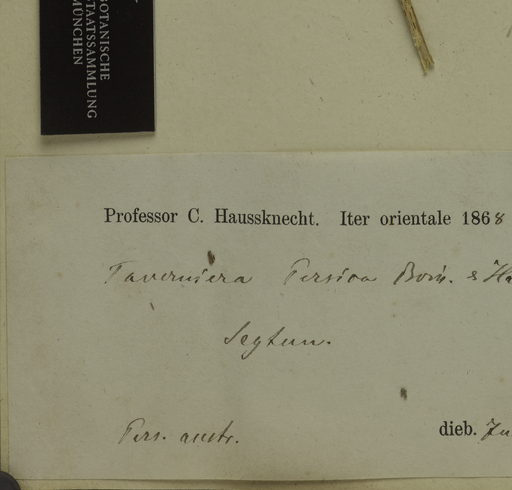 BOTANISCHE
STAATSSAMMLUNG
MÜNCHEN
Professor C. Haussknecht. Iter orientale 1868
Taverniera Persica Boiss. &
Pers. austr.
dieb.